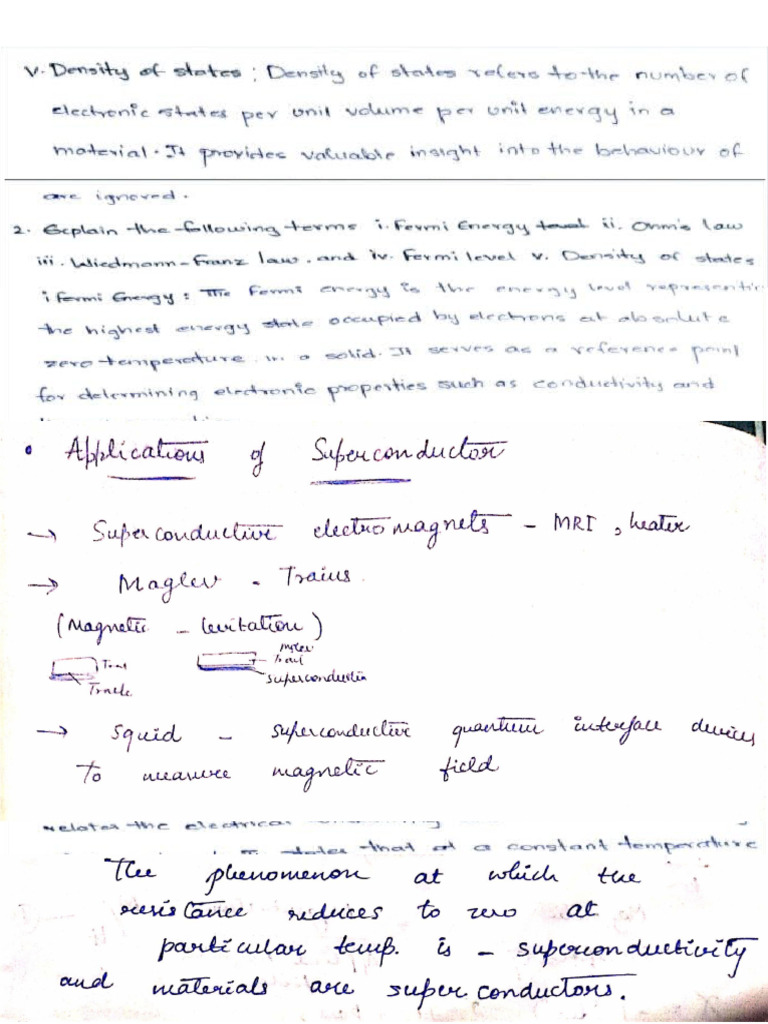 v. Density of states : Density of states refers to the number of
electronic states per unit volume per unit energy in a
material. It provides valuable insight into the behaviour of
are ignored.
2. Explain the following terms i. Fermi Energy level ii. Ohm's law
iii. Wiedmann-Franz law. and iv. Fermi level v. Density of states
i Fermi Energy: The Fermi energy is the energy level representin
the highest energy state occupied by electrons at absolute
zero temperature in a solid. It serves as a reference point
for determining electronic properties such as conductivity and
• Applications of Superconductor
→ Superconductive electromagnets - MRI, heater
→ Maglev - Trains.
(Magnetic - levitation)
Train
Track
superconductin
→ Squid - superconductive quantum interface devices
To measure magnetic field
relates the electrical
states that at a constant temperature
The phenomenon at which the
resistance reduces to zero at
particular temp. is - superconductivity
and materials are super conductors.